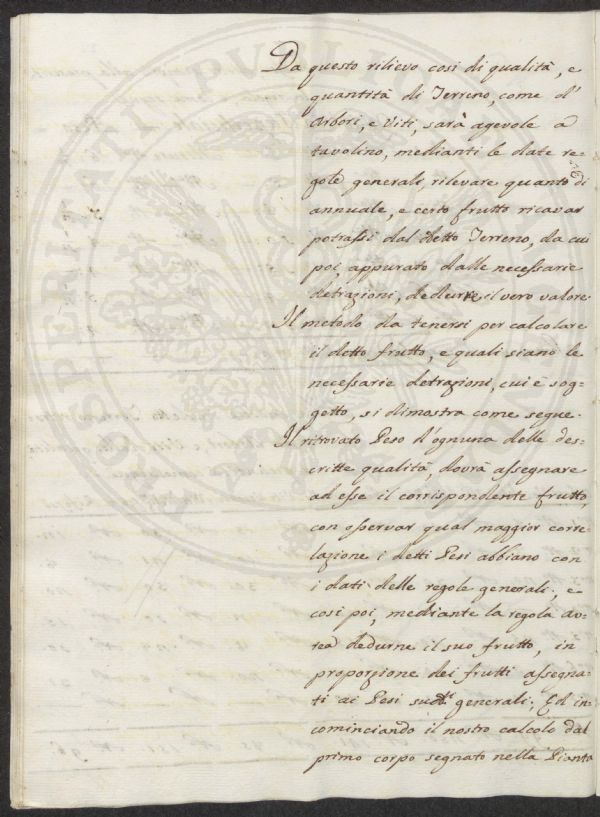 Da questo rilievo cosi di qualità, e
quantità di Terreno, come d'
Arbori, e Viti, sarà agevole a
tavolino, medianti le date re=
gole generali, rilevare quanto di
annuale, e certo frutto ricavar
potrassi dal detto Terreno, da cui
poi, appurato dalle necessarie
detrazioni, dedurre il vero valore.
Il metodo da tenersi per calcolare
il detto frutto, e quali siano le
necessarie detrazioni, cui è sog=
getto, si dimostra come segue.
Il ritrovato Peso d'ognuna delle des=
critte qualità, dovrà assegnare
ad esse il corrispondente frutto,
con osservar qual maggior corre=
lazione i detti Pesi abbiano con
i dati delle regole generali, e
così poi, mediante la regola au=
rea dedurne il suo frutto, in
proporzione dei frutti assegna=
ti ai Pesi sudt. generali. Ed in=
cominciando il nostro calcolo dal
primo corpo segnato nella Pianta
PROSPERITATI PUBLICAE